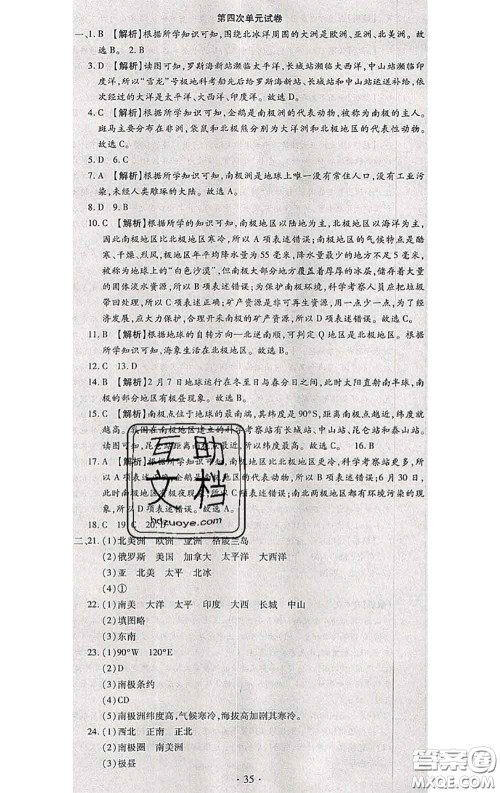 第四次单元试卷
一、1. B 【解析】根据所学知识可知,围绕北冰洋周围的大洲是欧洲、亚洲、北美洲。故
选 B。 2. B
3. D 【解析】读图可知,罗斯海新站濒临太平洋,长城站濒临大西洋,中山站濒临印
度洋,所以“雪龙”号极地科考船先后给罗斯海新站、长城站和中山站运送补给,依
次经过的大洋是太平洋、大西洋、印度洋。故选 D。
4. C 【解析】根据所学知识可知,企鹅是南极洲的代表动物,被称为南极的主人。
斑马主要分布在非洲,袋鼠和北极熊分别为大洋洲和北极地区的代表性动物。
故选 C。
5. D 6. C
7. A 【解析】根据所学知识可知,南极洲是地球上唯一没有常住人口,没有工业污
染,未经人类雕琢的大陆。故选 A。
8. D 9. B
10. C 【解析】根据所学的知识可知,南极地区以陆地为主,北极地区以海洋为主,
因此南极地区比北极地区寒冷,所以 A 项表述错误;南极地区的气候特点是酷
寒、干燥、烈风,极地地区年平均降水量为 55 毫米,降水量最少的地方不足 5 毫米,
被称为地球上的“白色沙漠”,但南极大部分地方覆盖着厚厚的冰层,储存着大量
的固体淡水资源,所以 B 项表述错误;为保护南极环境,科学考察人员应把垃圾
带回处理,所以 C 项表述正确;矿产资源是非可再生资源,用一点少一点,为了
经济发展,应大力保护,合理开采南极的矿产资源,所以 D 项表述错误。故选 C。
11. B 【解析】根据地球的自转方向—北逆南顺,可判定 Q 地区是北极地区。根据
所学知识可知,海象生活在北极地区。故选 B。
12. C 13. D
14. B 【解析】2 月 7 日地球运行在冬至日与春分日之间,此时太阳直射南半球,南
极的部分地区有极昼现象。故选 B。
15. C 【解析】南极点位于地球的最南端,其纬度是 90°S,距离南极点越近,纬度就
越高。我国在南极地区建立的科学考察站有长城站、中山站、昆仑站和泰山站。
读图可知,昆仑站距离南极点最近,所以纬度最高。故选 C。 16. B
17. A 【解析】根据所学知识可知,南极地区比北极地区更寒冷,科学考察站更多,所
以 A
此时南极地区有极夜现象,所以 C 项表述错误;南北两极地区都有环境污染的现
象,所以 D 项表述错误。故选 A。
18. C 19. C 20. D
二、21. (1)北美洲 欧洲 亚洲 格陵兰岛
(2)俄罗斯 美国 加拿大 太平洋 大西洋
(3)亚 北美 太平 北冰
(4)①
22. (1)南美 大洋 太平 印度 大西 长城 中山
(2)填图略
(3)东南
23. (1)90°W 120°E
(2)D
(3)南极条约
(4)CD
(5)南极洲纬度高,气候寒冷,海拔高加剧其寒冷。
24. (1)西北 正南 正北
(2)南极圈 南美洲
(3)极昼
· 35 ·
互助文档
hdzuoye.com